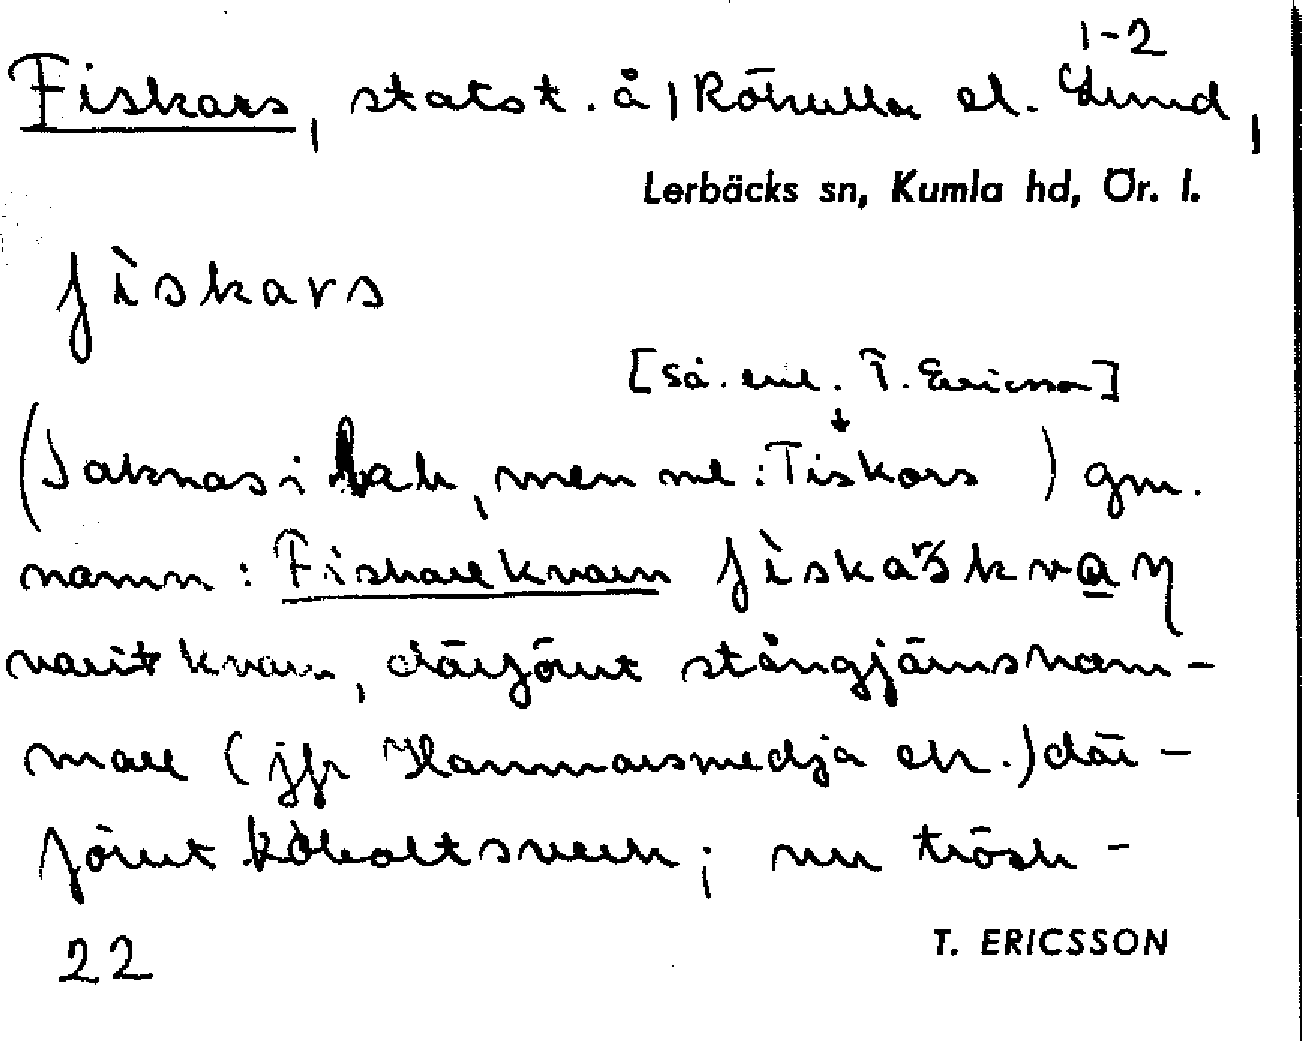 Fiskars, statst. å 1 Röhulla el. Lund 1-2,
Lerbäcks sn, Kumla hd, Ör. l.
fìskars
[så. enl. T. Ericsson]
(Saknas i bak, men me: Tiskars) gm.
namn: Fiskarekvarn
varit kvarn, därförut stångjärnsham-
mare (jfr Hammarsmedja etc.) där-
förut koboltsverk; nu trösk-
22
T. ERICSSON